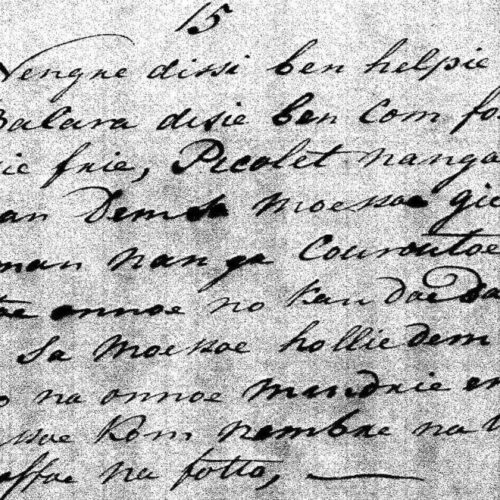 15
Nengre dissi ben helpie
Balara disie ben Com fo
ie frie, Picolet nanga
an Dem sa moessoe gie
man nanga Couroutoe
toe onnoe no kan doe Da
Sa moessoe hollie dem
o na onnoe mundrie en
ssoe kom nembre na
offoe na fotto,